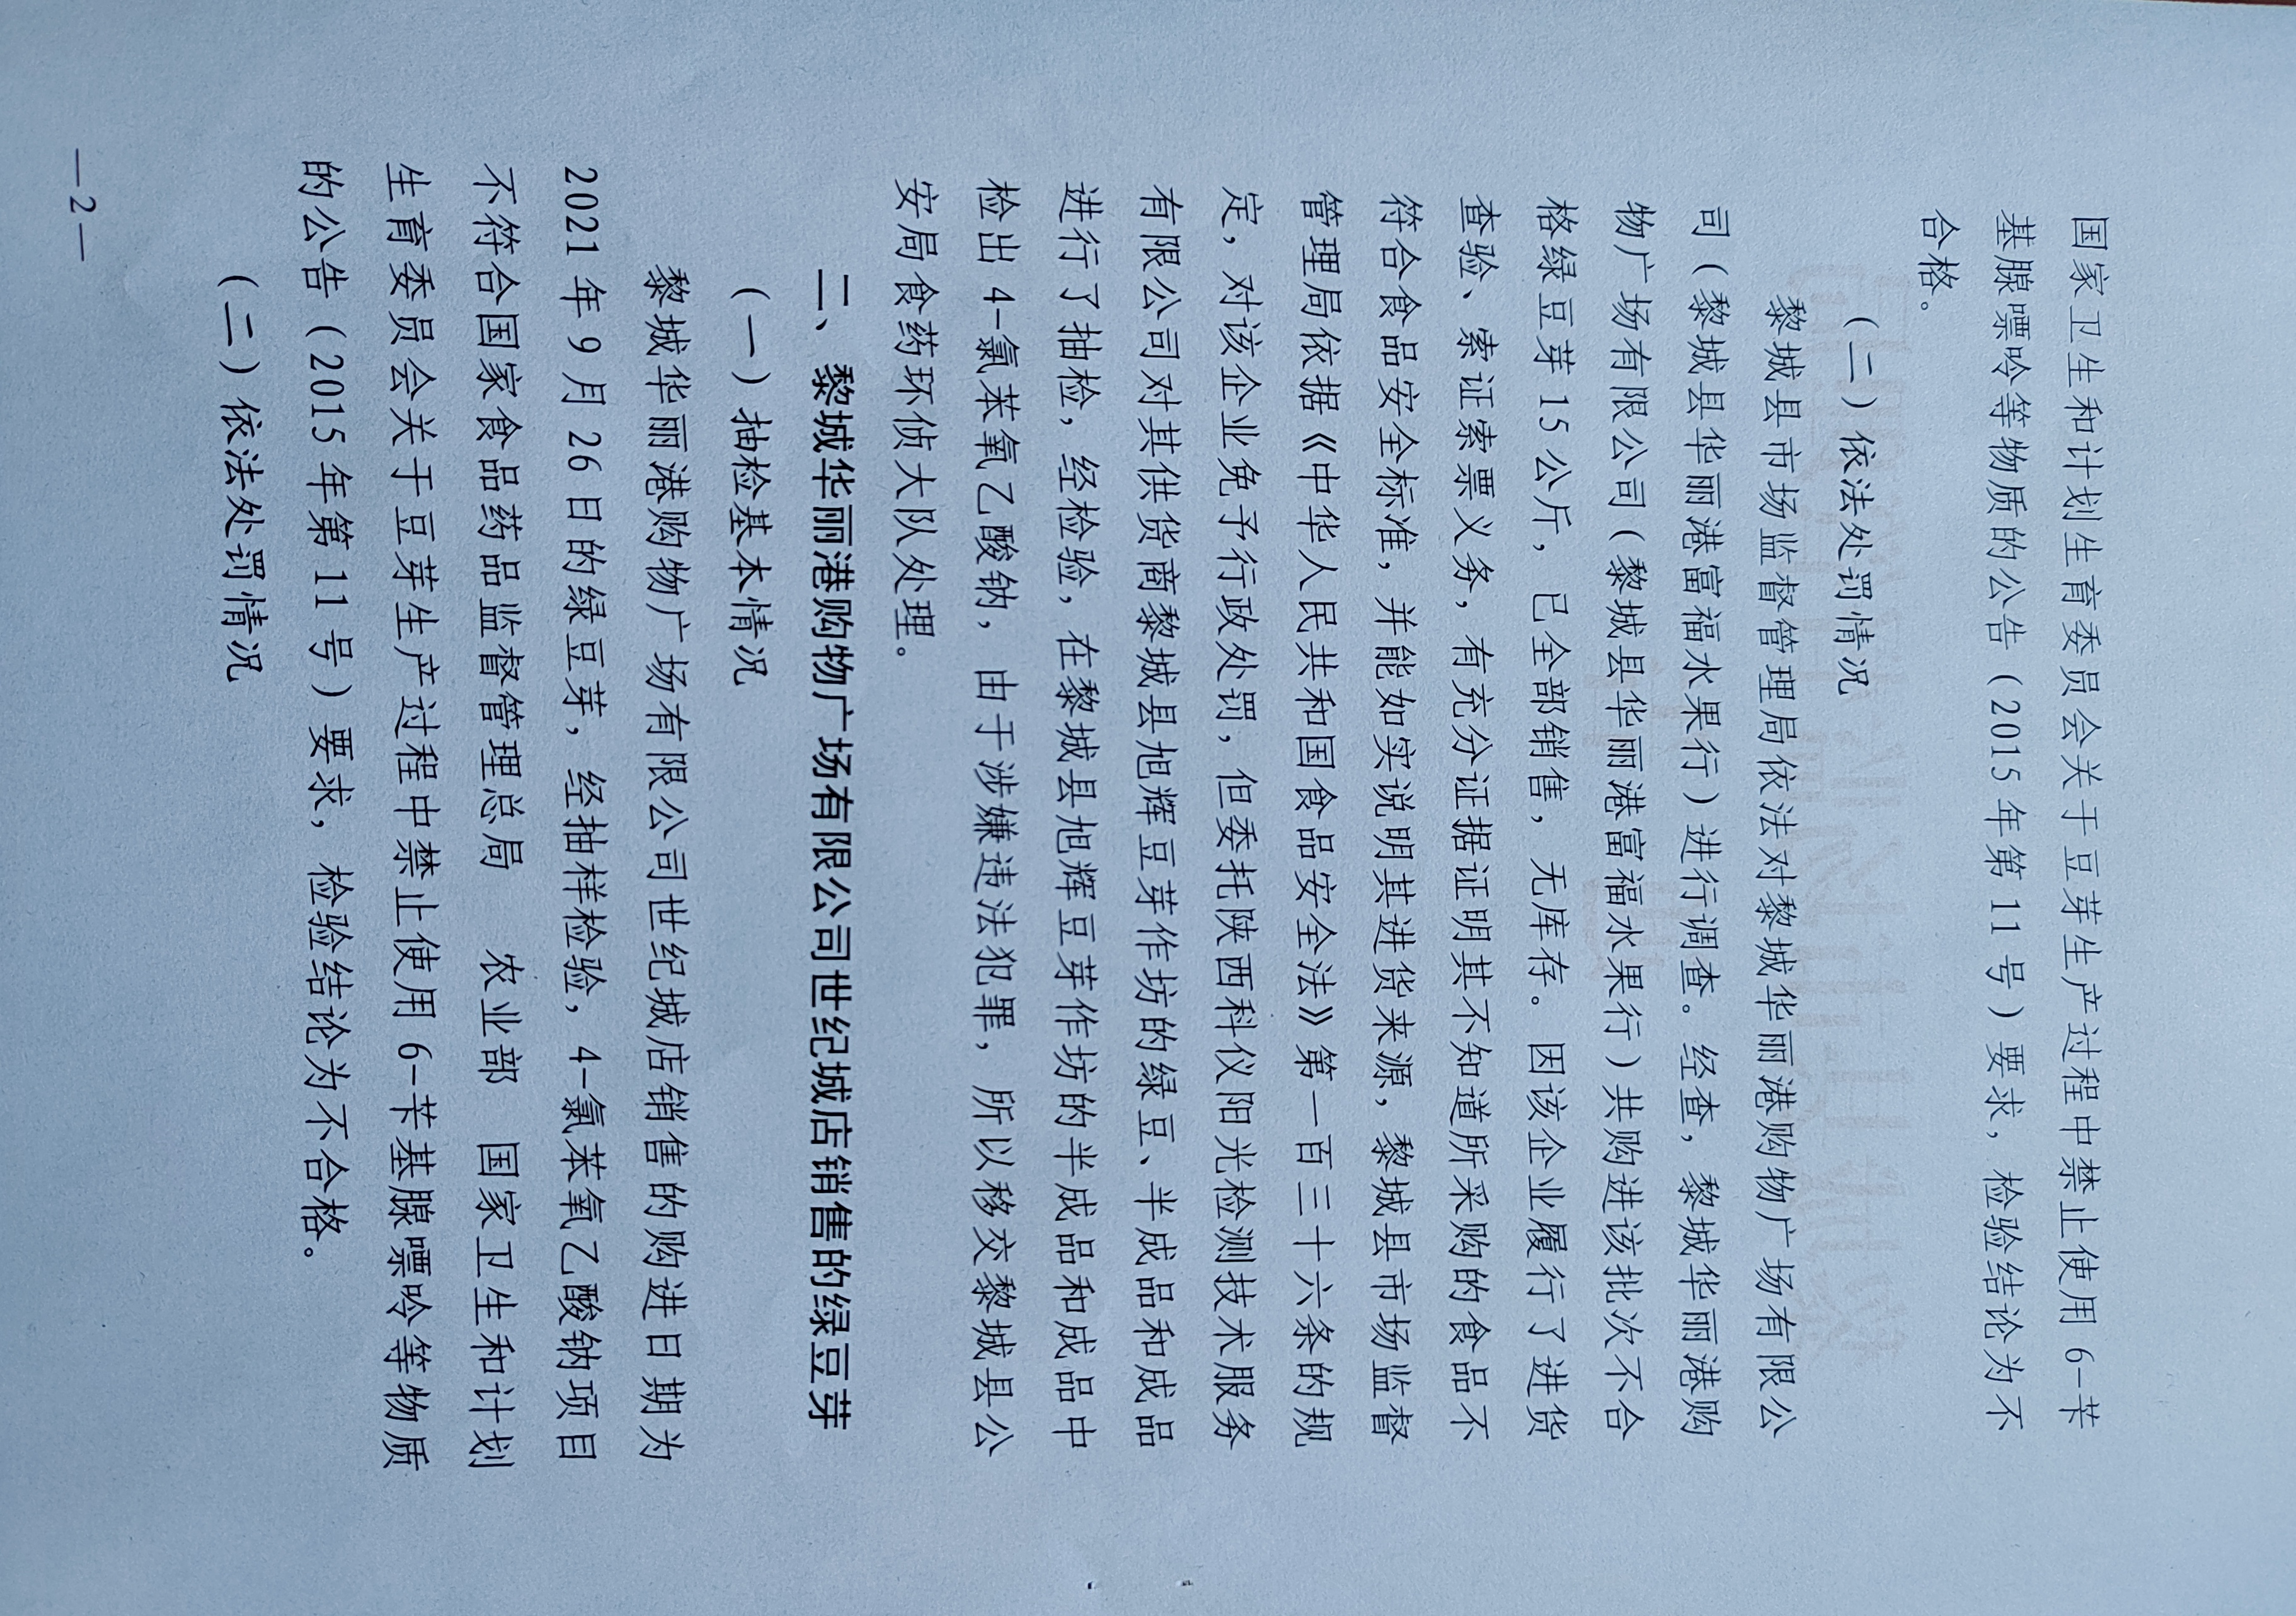 国家卫生和计划生育委员会关于豆芽生产过程中禁止使用 6-苄
基腺嘌呤等物质的公告（2015 年第 11 号）要求，检验结论为不
合格。
（二）依法处罚情况
黎城县市场监督管理局依法对黎城华丽港购物广场有限公
司（黎城县华丽港富福水果行）进行调查。经查，黎城华丽港购
物广场有限公司（黎城县华丽港富福水果行）共购进该批次不合
格绿豆芽 15 公斤，已全部销售，无库存。因该企业履行了进货
查验、索证索票义务，有充分证据证明其不知道所采购的食品不
符合食品安全标准，并能如实说明其进货来源，黎城县市场监督
管理局依据《中华人民共和国食品安全法》第一百三十六条的规
定，对该企业免予行政处罚，但委托陕西科仪阳光检测技术服务
有限公司对其供货商黎城县旭辉豆芽作坊的绿豆、半成品和成品
进行了抽检，经检验，在黎城县旭辉豆芽作坊的半成品和成品中
检出 4-氯苯氧乙酸钠，由于涉嫌违法犯罪，所以移交黎城县公
安局食药环侦大队处理。
二、黎城华丽港购物广场有限公司世纪城店销售的绿豆芽
（一）抽检基本情况
黎城华丽港购物广场有限公司世纪城店销售的购进日期为
2021 年 9 月 26 日的绿豆芽，经抽样检验，4-氯苯氧乙酸钠项目
不符合国家食品药品监督管理总局 农业部 国家卫生和计划
生育委员会关于豆芽生产过程中禁止使用 6-苄基腺嘌呤等物质
的公告（2015 年第 11 号）要求，检验结论为不合格。
（二）依法处罚情况
—2—